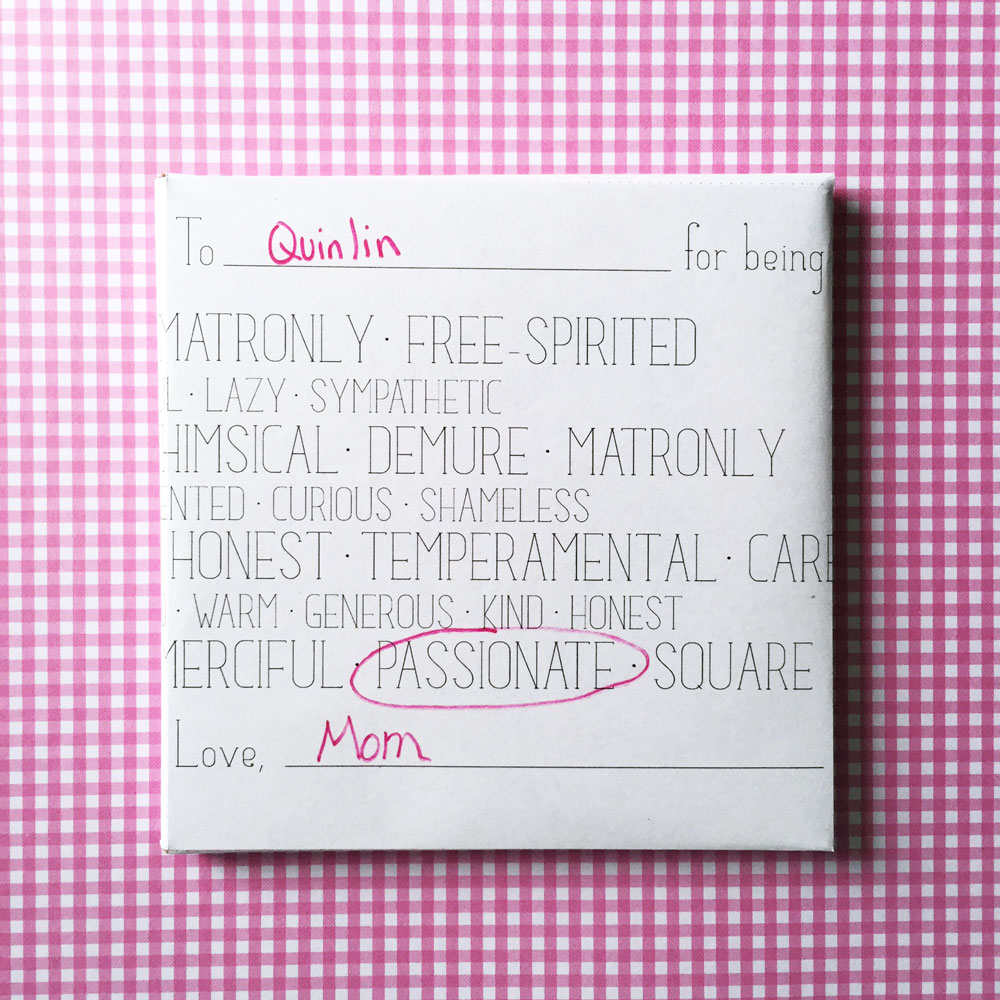 To Quinlin for being
MATRONLY · FREE-SPIRITED
L · LAZY · SYMPATHETIC
HIMSICAL · DEMURE · MATRONLY
NTED · CURIOUS · SHAMELESS
HONEST · TEMPERAMENTAL · CARE
· WARM · GENEROUS · KIND · HONEST
MERCIFUL · PASSIONATE · SQUARE
Love, Mom